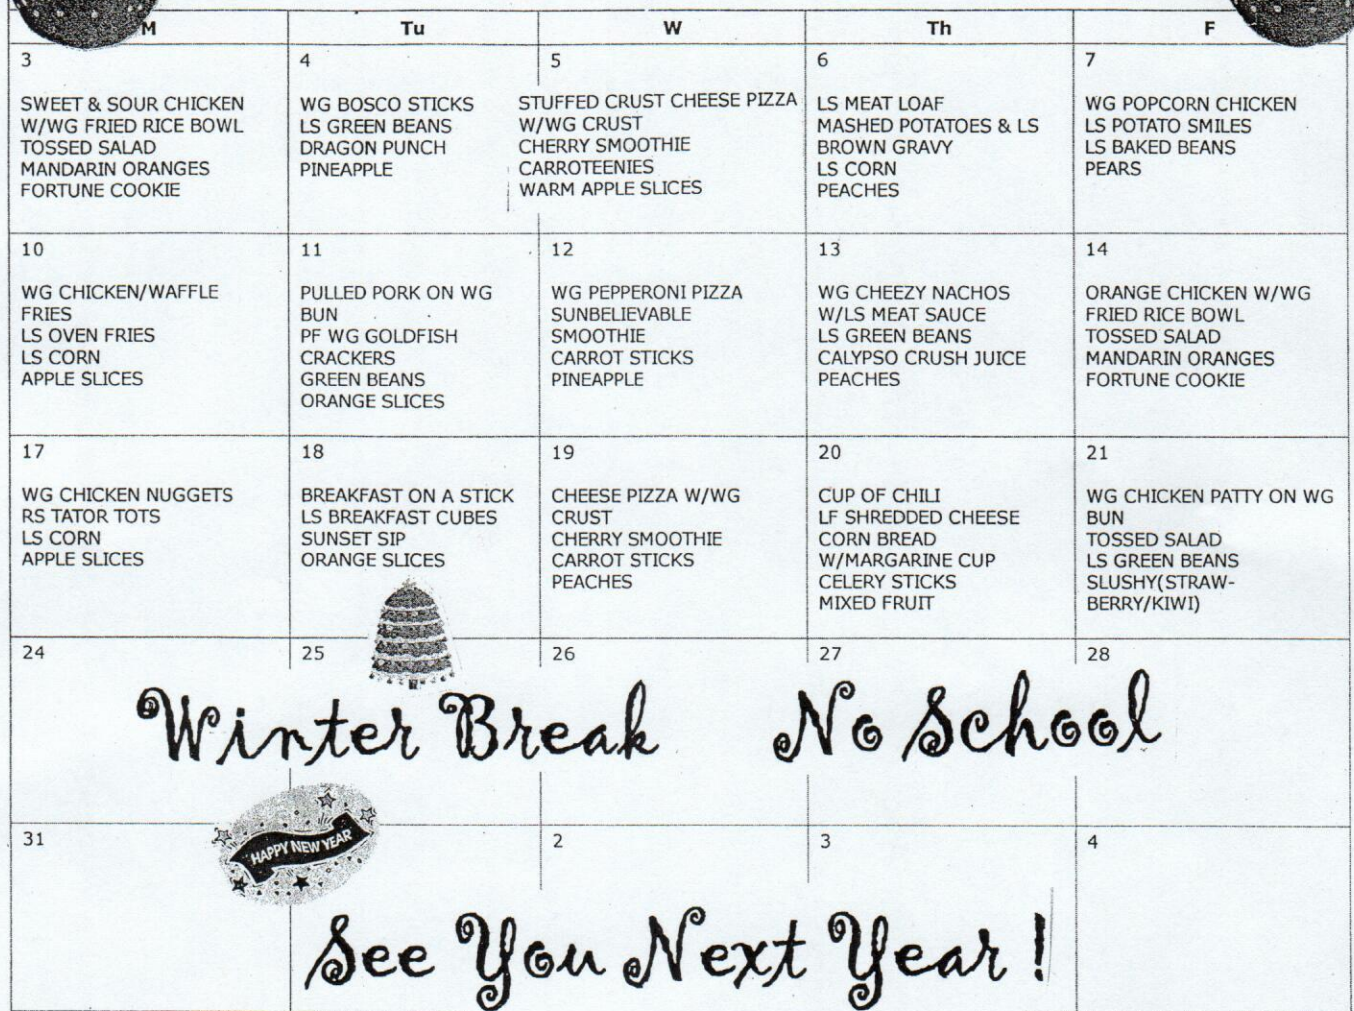 M Tu W Th F
3
SWEET & SOUR CHICKEN
W/WG FRIED RICE BOWL
TOSSED SALAD
MANDARIN ORANGES
FORTUNE COOKIE
4
WG BOSCO STICKS
LS GREEN BEANS
DRAGON PUNCH
PINEAPPLE
5
STUFFED CRUST CHEESE PIZZA
W/WG CRUST
CHERRY SMOOTHIE
CARROTEENIES
WARM APPLE SLICES
6
LS MEAT LOAF
MASHED POTATOES & LS
BROWN GRAVY
LS CORN
PEACHES
7
WG POPCORN CHICKEN
LS POTATO SMILES
LS BAKED BEANS
PEARS
10
WG CHICKEN/WAFFLE
FRIES
LS OVEN FRIES
LS CORN
APPLE SLICES
11
PULLED PORK ON WG
BUN
PF WG GOLDFISH
CRACKERS
GREEN BEANS
ORANGE SLICES
12
WG PEPPERONI PIZZA
SUNBELIEVABLE
SMOOTHIE
CARROT STICKS
PINEAPPLE
13
WG CHEEZY NACHOS
W/LS MEAT SAUCE
LS GREEN BEANS
CALYPSO CRUSH JUICE
PEACHES
14
ORANGE CHICKEN W/WG
FRIED RICE BOWL
TOSSED SALAD
MANDARIN ORANGES
FORTUNE COOKIE
17
WG CHICKEN NUGGETS
RS TATOR TOTS
LS CORN
APPLE SLICES
18
BREAKFAST ON A STICK
LS BREAKFAST CUBES
SUNSET SIP
ORANGE SLICES
19
CHEESE PIZZA W/WG
CRUST
CHERRY SMOOTHIE
CARROT STICKS
PEACHES
20
CUP OF CHILI
LF SHREDDED CHEESE
CORN BREAD
W/MARGARINE CUP
CELERY STICKS
MIXED FRUIT
21
WG CHICKEN PATTY ON WG
BUN
TOSSED SALAD
LS GREEN BEANS
SLUSHY(STRAW-
BERRY/KIWI)
24 25 26 27 28
Winter Break No School
31 2 3 4
HAPPY NEW YEAR
See You Next Year!